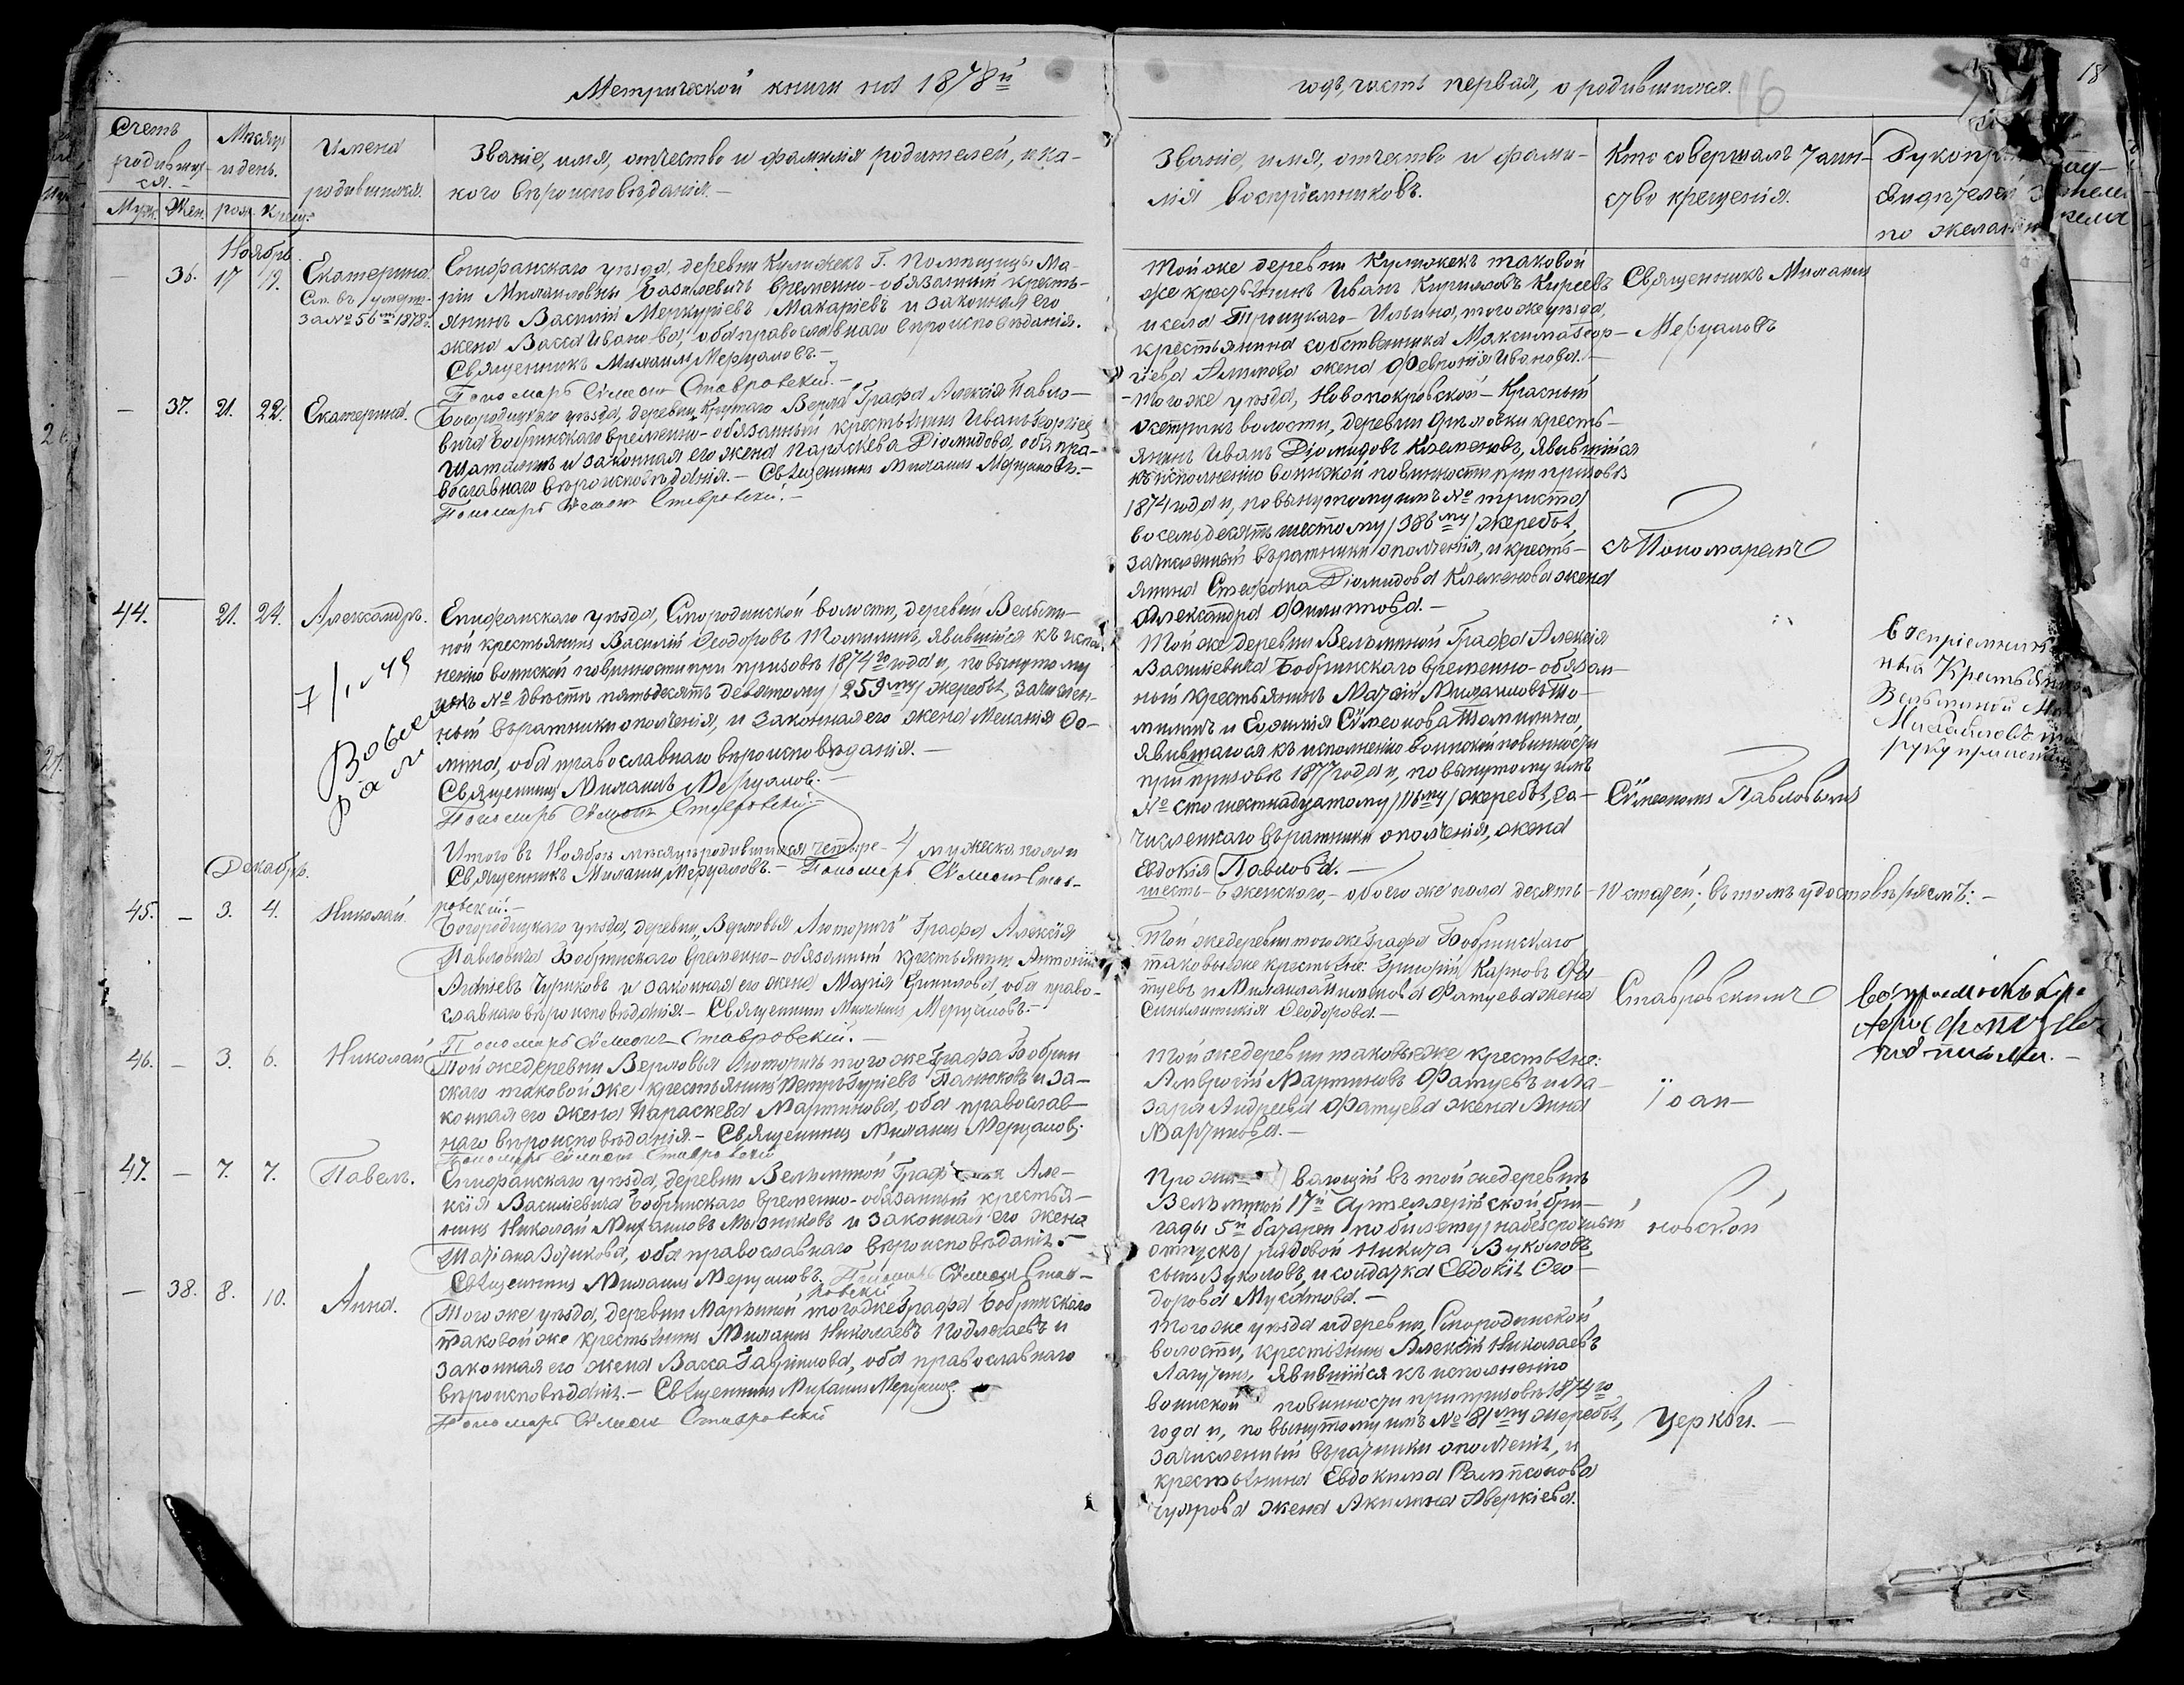 Метрической книги на 1878й
годъ, часть первая, о родившихся.
18
Счетъ родившихся.
Муж. Жен.
Мѣсяцъ и день.
рожд. крещ.
Имена родившихся.
Званіе, имя, отчество и фамилія родителей, и ка-
кого вѣроисповѣданія.
Званіе, имя, отчество и фами-
лія воспріемниковъ.
Кто совершалъ таин-
ство крещенія.
Свидѣтелей
по желанію
Ноябрь.
36. 17 19. Екатерина.
За № 56мъ 1878г.
Епифанскаго уѣзда, деревни Кулижекъ Г. Помѣщицы Ма-
ріи Михаиловны Базилевичъ временно-обязанный кресть-
янинъ Василій Меркуріевъ Макаріевъ и законная его
жена Васса Иванова, оба православнаго вѣроисповѣданія.
Священникъ Михаилъ Мерцаловъ.
Пономарь Сѵмеонъ Ставровскій.
Той же деревни Кулижекъ таковой
же крестьянинъ Иванъ Кирилловъ Киреевъ
и села Троицкаго-Ильина, того же уѣзда,
крестьянина собственника Максима Геор-
гіева Алихова жена Февронія Иванова.
Священникъ Михаилъ
Мерцаловъ
— 37. 21. 22. Екатерина.
Богородицкаго уѣзда, деревни Крутаго Верха Графа Алексія Павло-
вича Бобринскаго временно-обязанный крестьянинъ Иванъ Георгіев
Шаталинъ и законная его жена Параскева Діомидова, оба пра-
вославнаго вѣроисповѣданія. — Священникъ Михаилъ Мерцаловъ.
Пономарь Сѵмеонъ Ставровскій.
Того же уѣзда, Новопокровской-Красный
Осетрикъ волости, деревни крестъ-
янинъ Иванъ Діомидовъ Клеменовъ, явившійся
къ исполненію воинской повинности при призовѣ
1874 года и, по вынутому имъ № триста
восемьдесятъ шестому /386му/ жеребью,
зачисленный въ ратники ополченія, и кресть-
янина Стефана Діомидова Клеменова жена
Александра Филиппова.
съ Пономаремъ
44. 21. 24. Александръ.
Епифанскаго уѣзда, Смородинской волости, деревни Вельми-
ной крестьянинъ Василій Ѳеодоровъ Томилинъ, явившійся къ испол-
ненію воинской повинности при призовѣ 1874го года и, по вынутому
имъ № двѣсти пятьдесятъ девятому /259му/ жеребью, зачислен-
ный въ ратники ополченія, и законная его жена Меланія Ѳо-
мина, оба православнаго вѣроисповѣданія.
Священникъ Михаилъ Мерцалов.
Пономарь Сѵмеонъ Ставровскій.
Той же деревни Вельминой Графа Алексія
Васильевича Бобринскаго временно-обязан-
ный крестьянинъ Матѳій Михаиловъ То-
милинъ и Евѳимія Сѵмеонова Томилина,
явившагося къ исполненію воинской повинности
при призовѣ 1877 года и, по вынутому имъ
№ сто шестнадцатому /116му/ жеребью, за-
численнаго въ ратники ополченія, жена
Евдокія Павлова.
Сѵмеономъ Павловымъ
Вельминой
Михайловъ
руку приложилъ
Итого въ Ноябрѣ мѣсяцѣ родившихся четыре - 4 мужеска пола и
шесть - 6 женскаго, - обоего же пола десять - 10 статей; въ томъ удостовѣряемъ: -
Священникъ Михаилъ Мерцаловъ. — Пономарь Сѵмеонъ Став-
ровскій.
Декабрь.
45. — 3. 4. Николай.
Богородицкаго уѣзда, деревни „Верховья Люторичъ" Графа Алексія
Павловича Бобринскаго временно-обязанный крестьянинъ Антоній
Чуриковъ и законная его жена Марія Кириллова, оба право-
славнаго вѣроисповѣданія. — Священникъ Михаилъ Мерцаловъ.
Пономарь Сѵмеонъ Ставровскій.
Той же деревни того же Графа Бобринскаго
таковые же крестьяне: Григорій Карповъ Фа-
туевъ и Михаила Фатуева жена
Синклитикія Ѳеодорова.
Ставровскимъ
46. — 3. 6. Николай
Той же деревни Верховья Люторичъ того же Графа Бобрин
скаго таковой же крестьянинъ Петръ Гуріевъ Панюковъ и за-
конная его жена Параскева Мартинова, оба православ-
наго вѣроисповѣданія. — Священникъ Михаилъ Мерцаловъ.
Пономарь Сѵмеонъ Ставровскій
Той же деревни таковые же крестьяне:
Амвросій Мартиновъ Фатуевъ и Ла-
заря Андреева Фатуева жена Анна
Мартинова.
Іоан-
47. — 7. 7. Павелъ.
Епифанскаго уѣзда, деревни Вельминой Граф Але-
ксія Васильевича Бобринскаго временно-обязанный крестья-
нинъ Николай Михаиловъ Мызниковъ и законная его жена
Татіана Зотикова, оба православнаго вѣроисповѣданія.
Священникъ Михаилъ Мерцаловъ. Пономарь Сѵмеонъ Став-
ровскій
вающій въ той же деревнѣ
Вельминой 17й Артиллерійской бри-
гады 5й батареи /по билету/ на безсрочный
отпускъ/ рядовой Никита Вуколовъ
сынъ Вуколовъ, и солдатка Евдокія Ѳео-
дорова Мусатова.
новской
— 38. 8. 10. Анна.
Того же уѣзда, деревни Марьиной, того же Графа Бобринскаго
таковой же крестьянинъ Михаилъ Николаевъ Подлегаевъ и
законная его жена Васса Гавріилова, оба православнаго
вѣроисповѣданія. — Священникъ Михаилъ Мерцалов.
Пономарь Сѵмеонъ Ставровскій
Того же уѣзда и деревни, Смородинской
волости, крестьянинъ Алексій Николаевъ
Лагутинъ, явившійся къ исполненію
воинской повинности при призовѣ 1874го
года и, по вынутому имъ № 81му жеребью,
зачисленный въ ратники ополченія, и
крестьянина Евдокима Сампсонова
жена Акилина Аверкіева.
Церкви.